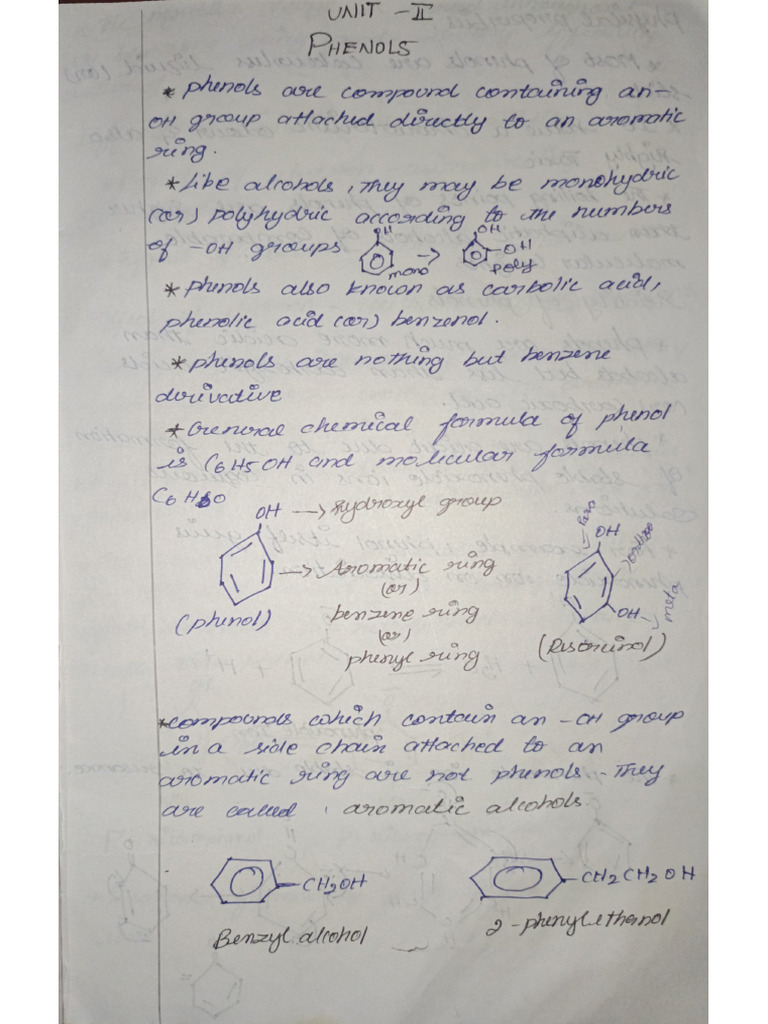 UNIT - II
PHENOLS
* phenols are compound containing an-
OH group attached directly to an aromatic
ring.
* Like alcohols, They may be monohydric
(or) polyhydric according to the numbers
of -OH groups
OH
mono
→
OH
-OH
poly
* phenols also known as carbolic acid,
phenolic acid (or) benzenol.
* phenols are nothing but benzene
derivative
* General chemical formula of phenol
is C6H5OH and molecular formula
C6H6O
OH → Hydroxyl group
→ Aromatic ring
(or)
benzene ring
(or)
phenyl ring
(phenol)
Para
OH
ortho
OH
meta
* compounds which contain an -OH group
in a side chain attached to an
aromatic ring are not phenols. They
are called, aromatic alcohols.
-CH2OH
Benzyl alcohol
-CH2CH2OH
2-phenylethanol